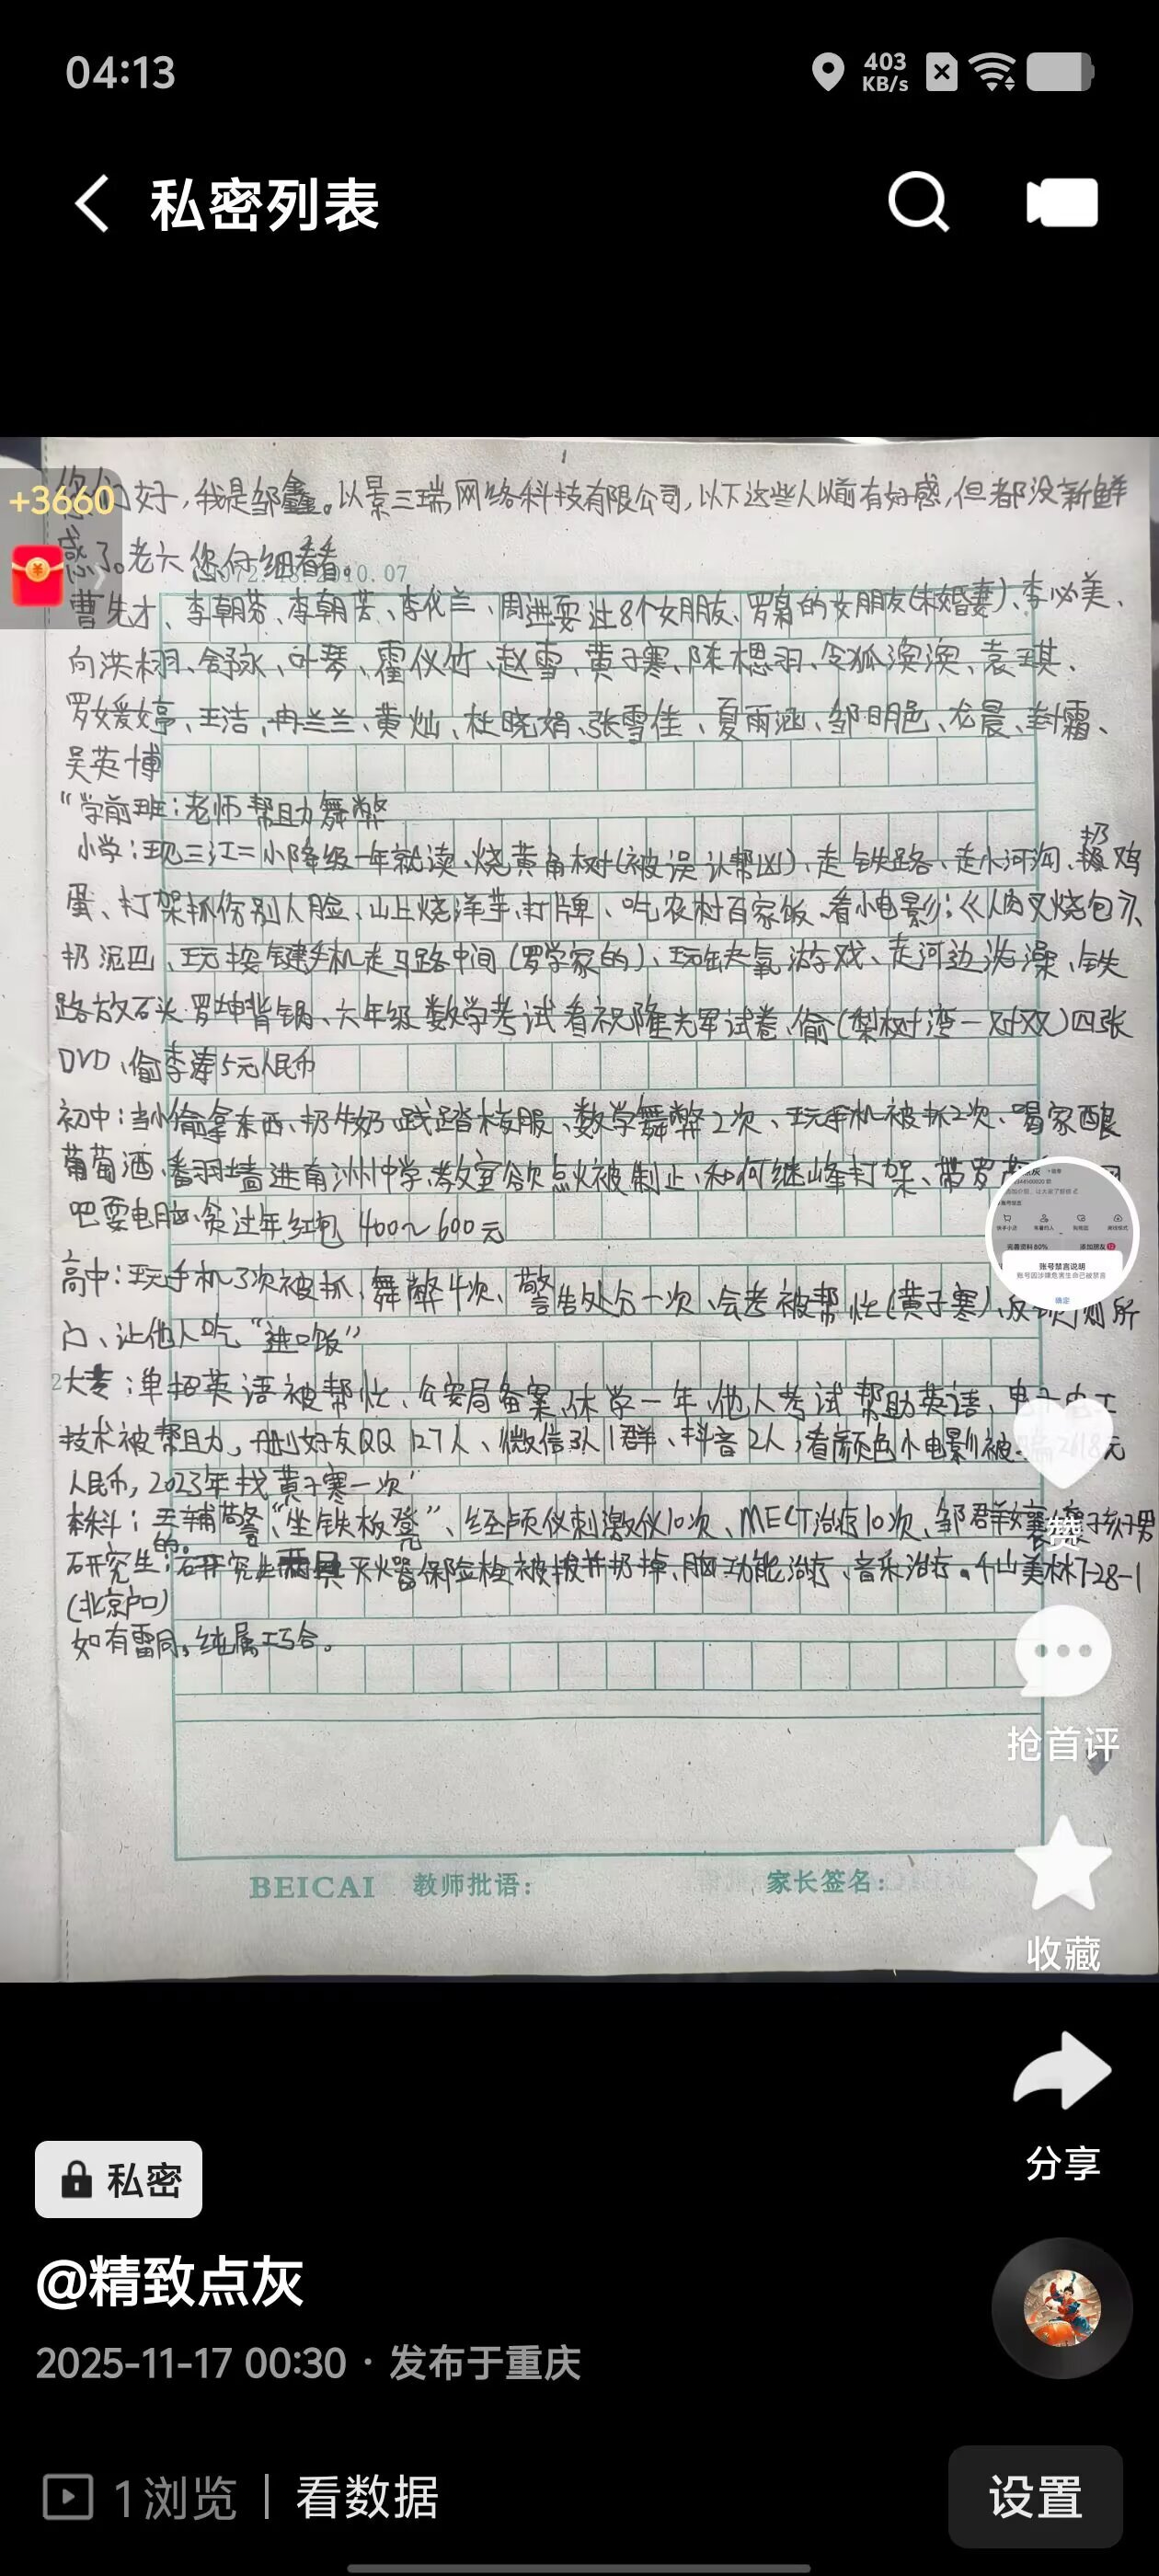 04:13
403
KB/s
私密列表
+3660
1
您们好，我是邹鑫。以景三瑞网络科技有限公司，以下这些人以前有好感，但都没新鲜
感了。老六您仔细看看。
曹先才、李朝芬、李朝芳、李代兰、周进耍过8个女朋友、罗枭的女朋友(未婚妻)、李必美、
向洪栩、舒咏、叶琴、霍仪竹、赵雪、黄子寒、陈思羽、令狐澳澳、袁琪、
罗媛婷、王洁、冉兰兰、黄灿、杜晓娟、张雪佳、夏雨涵、邹明色、龙晨、封霜、
吴英博
“学前班：老师帮助舞弊
小学：现三江二小降级一年就读、烧黄角树(被误认帮凶)、走铁路、走小河沟、扔鸡
蛋、打架抓伤别人脸、山上烧洋芋、打牌、吃农村百家饭、看小电影；《人肉叉烧包》、
扔泥巴、玩按键手机走马路中间(罗学家的)、玩缺氧游戏、走河边洗澡、铁
路放石头罗坤背锅、六年级数学考试看祝隆光军试卷、偷(梨树湾一对双)四张
DVD、偷李涛5元人民币
初中：当小偷拿东西、扔牛奶、践踏校服、数学舞弊2次、玩手机被抓2次、喝家酿
葡萄酒、翻墙进育洲中学、教室欲点火被制止、和何继峰打架、带罗
吧耍电脑、贪过年红包400～600元
高中：玩手机3次被抓、舞弊4次、警告处分一次、会考被帮忙(黄子寒)、反锁厕所
门、让他人吃“进口饭”
大专：单招英语被帮忙、公安局备案、休学一年、他人考试帮助英语、电子电工
技术被帮助，删好友QQ 127人、微信3人1群、抖音2人；看颜色小电影被骗2618元
人民币，2023年找黄子寒一次’
本科：丢辅警“坐铁板凳”、经颅仪刺激仪10次、MECT治疗10次、邹群
的。
研究生：灭火器保险栓被拔并扔掉、脑功能治疗、音乐治疗。千山美林7-28-1
(北京户口)
如有雷同，纯属巧合。
BEICAI 教师批语： 家长签名：
账号禁言说明
账号因涉嫌危害生命已被禁言
确定
赞
抢首评
收藏
分享
私密
@精致点灰
2025-11-17 00:30 · 发布于重庆
1浏览 | 看数据
设置